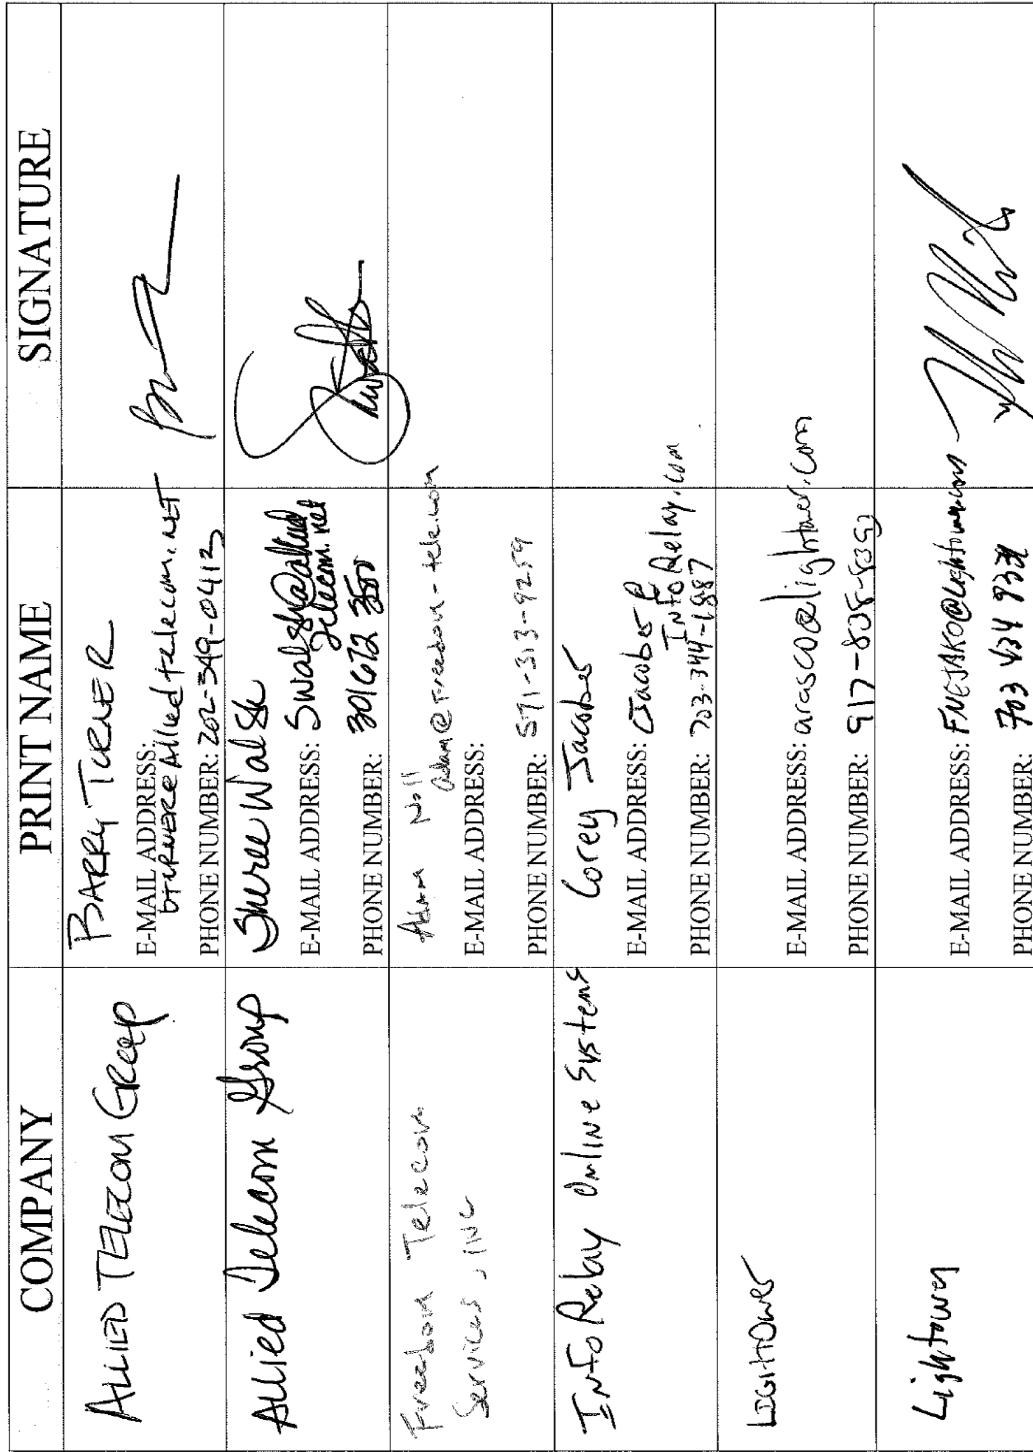 COMPANY PRINT NAME SIGNATURE
ALLIED TELECOM GROUP
BARRY TURNER
E-MAIL ADDRESS:
bturner@alliedtelecom.net
PHONE NUMBER: 202-349-0412
Allied Telecom Group
Sheree Walsh
E-MAIL ADDRESS: Swalsh@allied
telecom.net
PHONE NUMBER: 301 672 3500
Freedom Telecom
Services, INC
Adam Noll
adam@freedom-tele.com
E-MAIL ADDRESS:
PHONE NUMBER: 571-313-9259
InfoRelay Online Systems
Corey Jacobes
E-MAIL ADDRESS: CJacobes@
InfoRelay.com
PHONE NUMBER: 703-344-1887
LIGHTOWER
E-MAIL ADDRESS: arasco@lightower.com
PHONE NUMBER: 917-838-8393
Lightower
E-MAIL ADDRESS: FMEJAKO@Lightower.com
PHONE NUMBER: 703 434